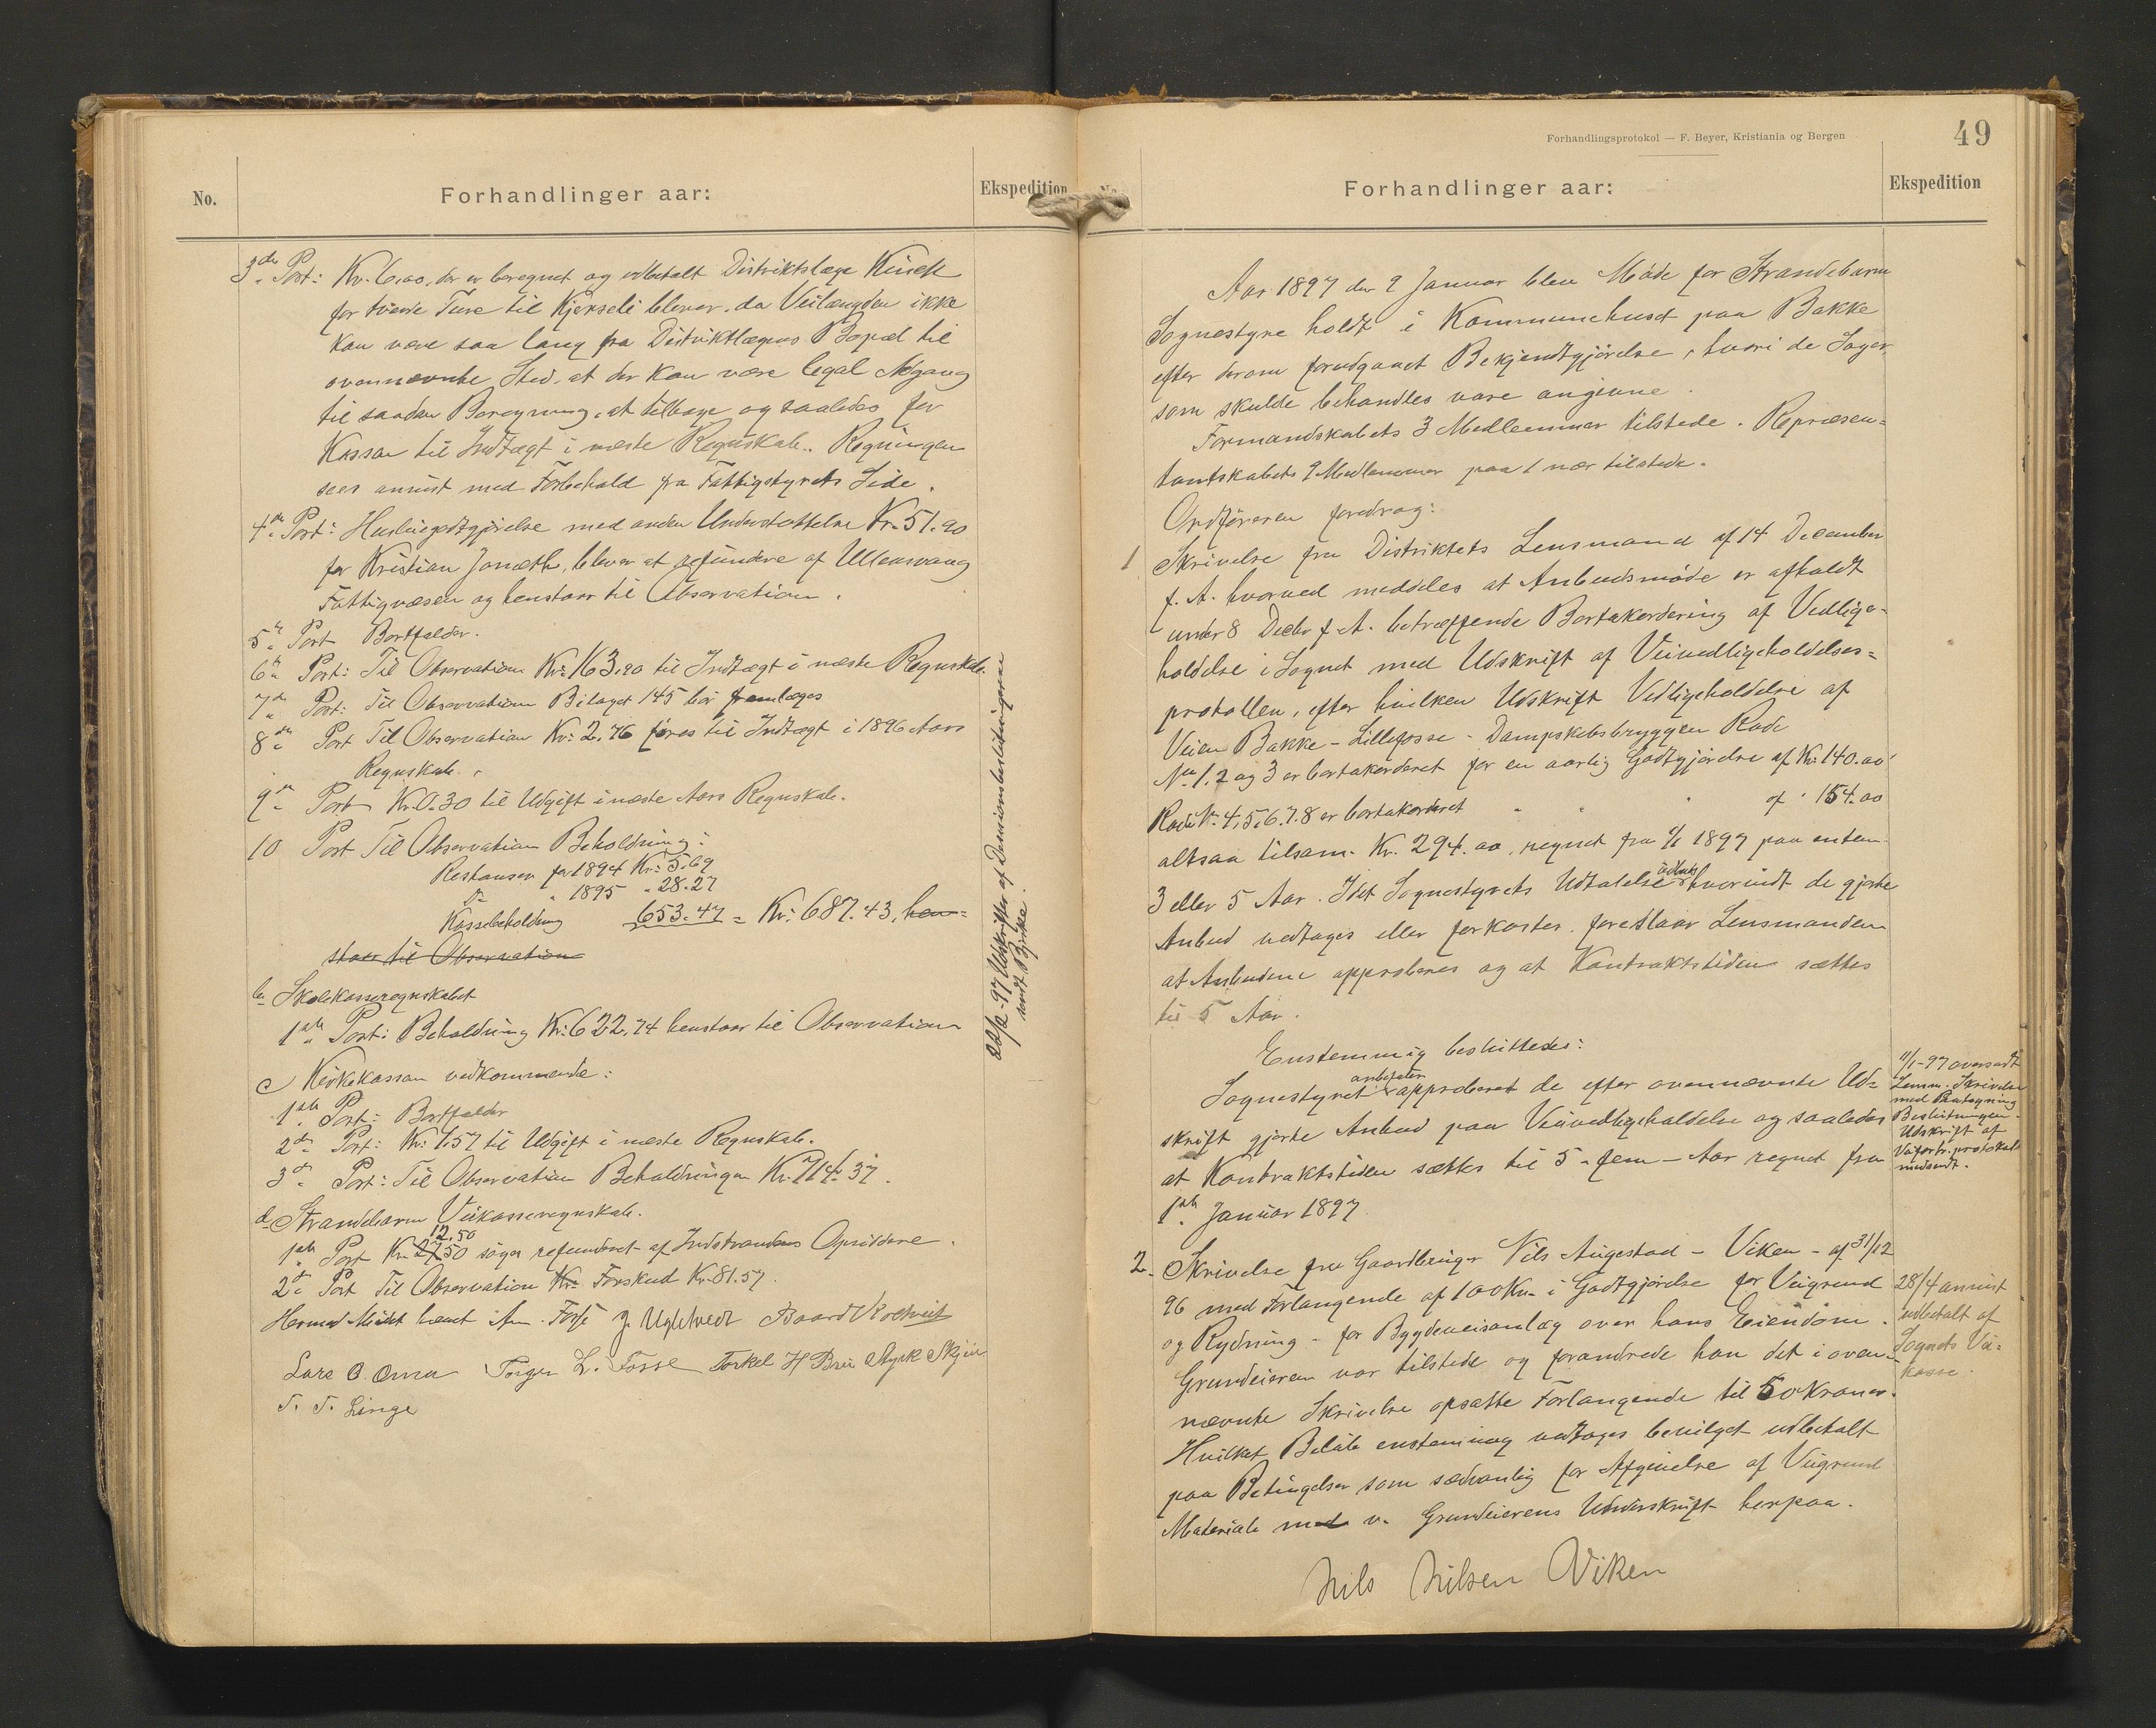 No.
Forhandlinger aar:
Ekspedition
3die Post: Kr. 6.00, der er beregnet og udbetalt Distriktslæge Kinck
for tvende Ture til Kjerseli bliver, da Veilængden ikke
kan være saa lang fra Distriktlægens Bopæl til
ovennævnte Sted, at der kan være legal Adgang
til saadan Beregning, at tilbage og saaledes for
Kassen til Indtægt i næste Regnskab. Regningen
sees anvist med Forbehold fra Fattigstyrets Side.
4de Post: Huslegodtgjørelse med anden Understøttelse Kr. 51.90
for Kristian Jonæth, bliver at refundere af Ullensvang
Fattigvæsen og henstaar til Observation.
5te Post Bortfalder.
6te Post: Til Observation Kr. 163.90 til Indtægt i næste Regnskab.
7de Post: Til Observation Bilaget 145 bør fremlægges
8de Post Til Observation Kr. 2.76 føres til Indtægt i 1896 Aars
Regnskab.
9de Post Kr. 0.30 til Udgift i næste Aars Regnskab.
10 Post Til Observation Beholdning:
Restanser for 1894 Kr. 5.69
Do " 1895 " 28.27
Kassebeholdning 653.47 = Kr. 687.43, hen=
staar til Observation
b. Skolekasseregnskabet
1ste Post: Beholdning Kr. 622.74 henstaar til Observation
c Kirkekassen vedkommende:
1ste Post: Bortfalder
2de Post: Kr. 1.57 til Udgift i næste Regnskab.
3de Post: Til Observation Beholdningen Kr. 714.37.
d. Strandebarm Veikasseregnskab.
12.50
1ste Post Kr. 27.50 søges refunderet af Indstrandens Opsiddere.
2de Post Til Observation Kr. Forskud Kr. 81.57.
Hermed Mødet hævet Am. Fosse J. Ughtvedt Baard Kolltveit
Lars O. Oma Torger L. Fosse Torkel H Brue Styrk Skjeie
T. T. Linge
22/2-97 Udskrifter af Decisionsbeslutningerne
sendt Bjerke.
Forhandlingsprotokol — F. Beyer, Kristiania og Bergen
49
No.
Forhandlinger aar:
Ekspedition
Aar 1897 den 9 Januar blev Møde for Strandebarm
Sognestyre holdt i Kommunehuset paa Bakke
efter derom forudgaaet Bekjendtgjørelse, hvori de Sager,
som skulde behandles vare angivne.
Formandskabets 3 Medlemmer tilstede. Repræsen=
tantskabets 9 Medlemmer paa 1 nær tilstede.
Ordføreren foredrog:
1 Skrivelse fra Distriktets Lensmand af 14 December
f. A. hvorved meddeles at Anbudsmøde er afholdt
under 8 Decbr f. A. betræffende Bortakkordering af Vedlige-
holdelse i Sognet med Udskrift af Veivedligeholdelses=
protokollen, efter hvilken Udskrift Vedligeholdelse af
Veien Bakke - Lillefosse - Dampskibsbryggen Rode
No 1, 2 og 3 er bortakkorderet for en aarlig Godtgjørelse af Kr. 140.00
Rode No. 4, 5, 6. 7. 8 er bortakorderet " " " af " 154.00
altsaa tilsam. Kr. 294.00, regnet fra 1/1 1897 paa enten
3 eller 5 Aar. Idet Sognestyrets Udtalelse udbedes hvorvidt de gjorte
Anbud vedtages eller forkastes, foreslaar Lensmanden
at Anbudene approberes og at Kontraktstiden sættes
til 5 Aar.
Enstemmig besluttedes:
anbefaler
Sognestyret approberet de efter ovennævnte Ud=
skrift gjorte Anbud paa Veivedligeholdelse og saaledes
at Kontraktstiden sættes til 5 - fem - Aar regnet fra
1ste Januar 1897.
11/1-97 oversendt
Lensm. Skrivelse
med Paategning
Beslutningen.
Udskrift af
Veiforh. protokol
medsendt.
2. Skrivelse fra Gaardbruger Nils Augestad - Viken - af 31/12
96 med Forlangende af 100 Kr. i Godtgjørelse for Veigrund
og Rydning - for Bygdeveisanlæg over hans Eiendom.
Grundeieren var tilstede og forandrede han det i oven=
nævnte Skrivelse opsatte Forlangende til 50 Kroner.
Hvilket Beløb enstemmig vedtages bevilget udbetalt
paa Betingelser som sædvanlig for Afgivelse af Veigrund
Materiale med v. Grundeierens Underskrift herpaa.
28/4 anvist
udbetalt af
Sognets Vei=
kasse.
Nils Nilsen Viken